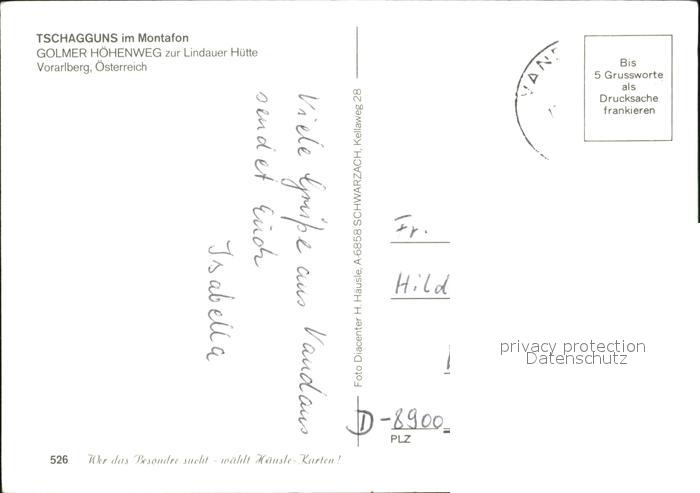 TSCHAGGUNS im Montafon
GOLMER HÖHENWEG zur Lindauer Hütte
Vorarlberg, Österreich
Viele Grüße aus Vandans
sendet Euch
Isabella
Foto Diacenter H. Häusle, A-6858 SCHWARZACH, Kellaweg 28
VANS
Bis
5 Grussworte
als
Drucksache
frankieren
Fr.
Hild
privacy protection
Datenschutz
D-8900
PLZ
526 Wer das Besondre sucht - wählt Häusle-Karten!